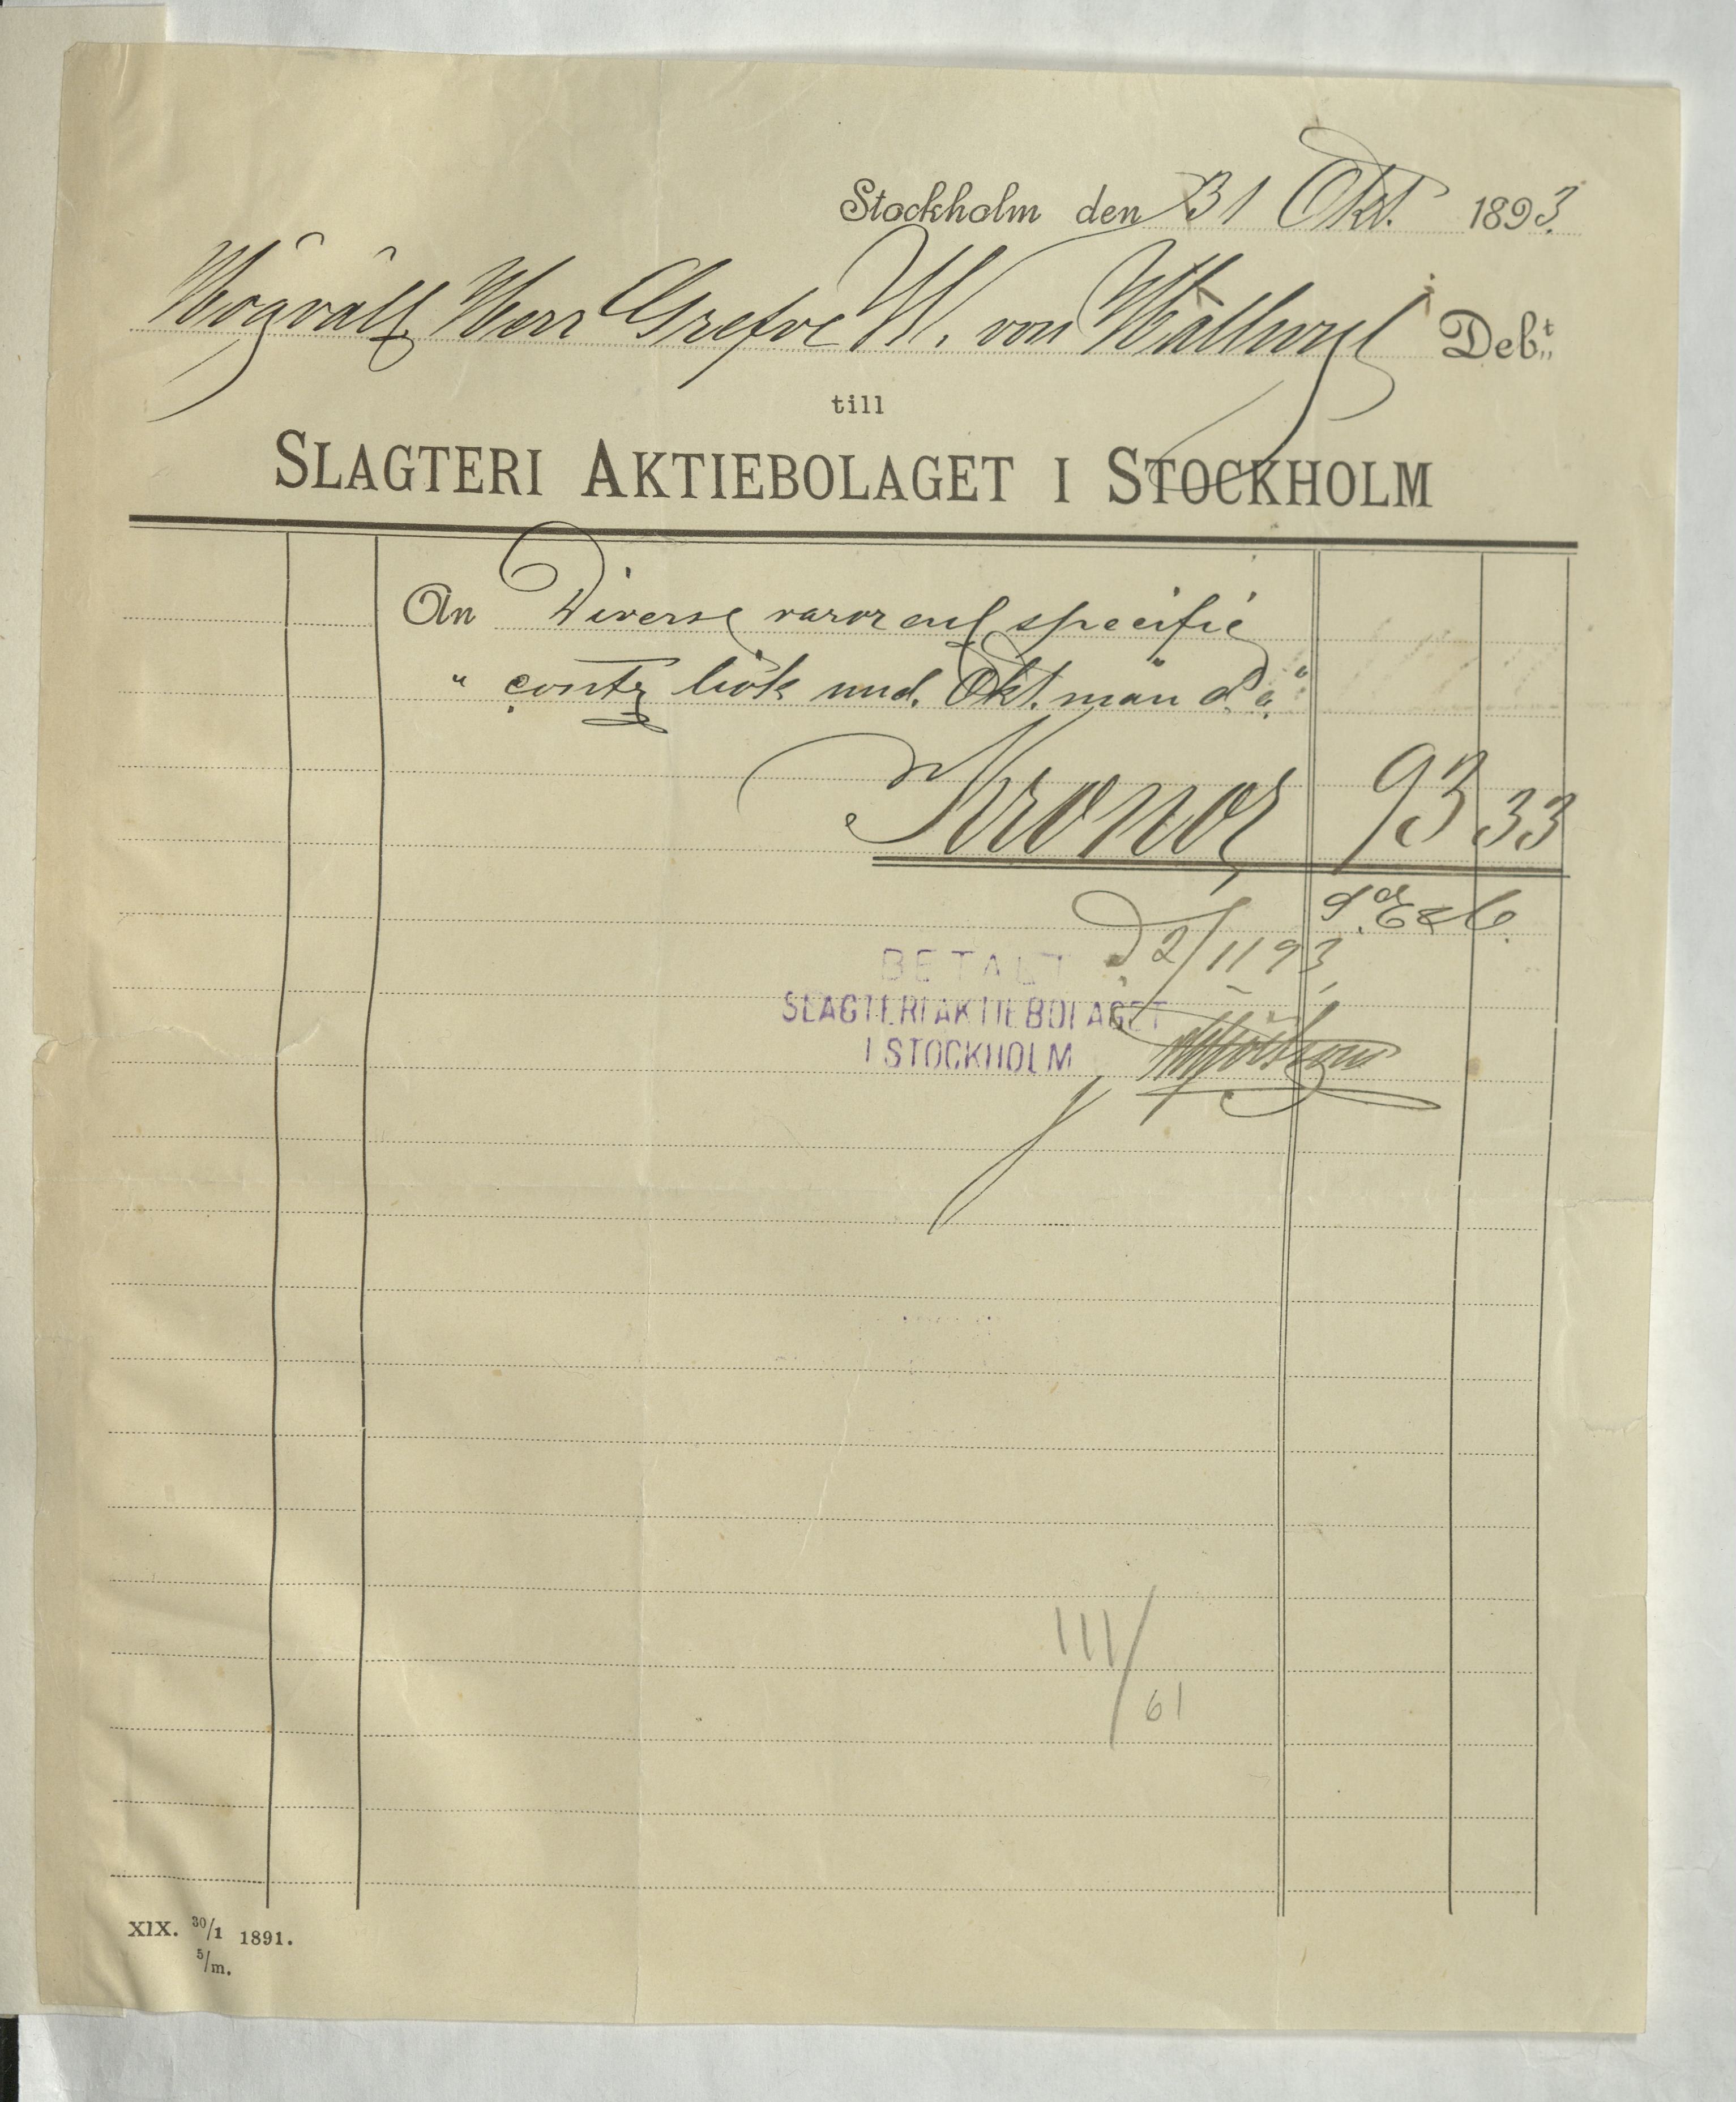 Stockholm den 31 Okt. 1893.
Högväll Herr Grefve W. von Hallwyl Deb:t
till
SLAGTERI AKTIEBOLAGET I STOCKHOLM
An Diverse varor enl specifie
" contra bok und. Okt. mån d. å.
Kronor 93 33
S. E & O.
d 2/11 93
BETALT
SLAGTERIAKTIEBOLAGET
I STOCKHOLM
111/61
XIX. 30/1 1891.
5/m.